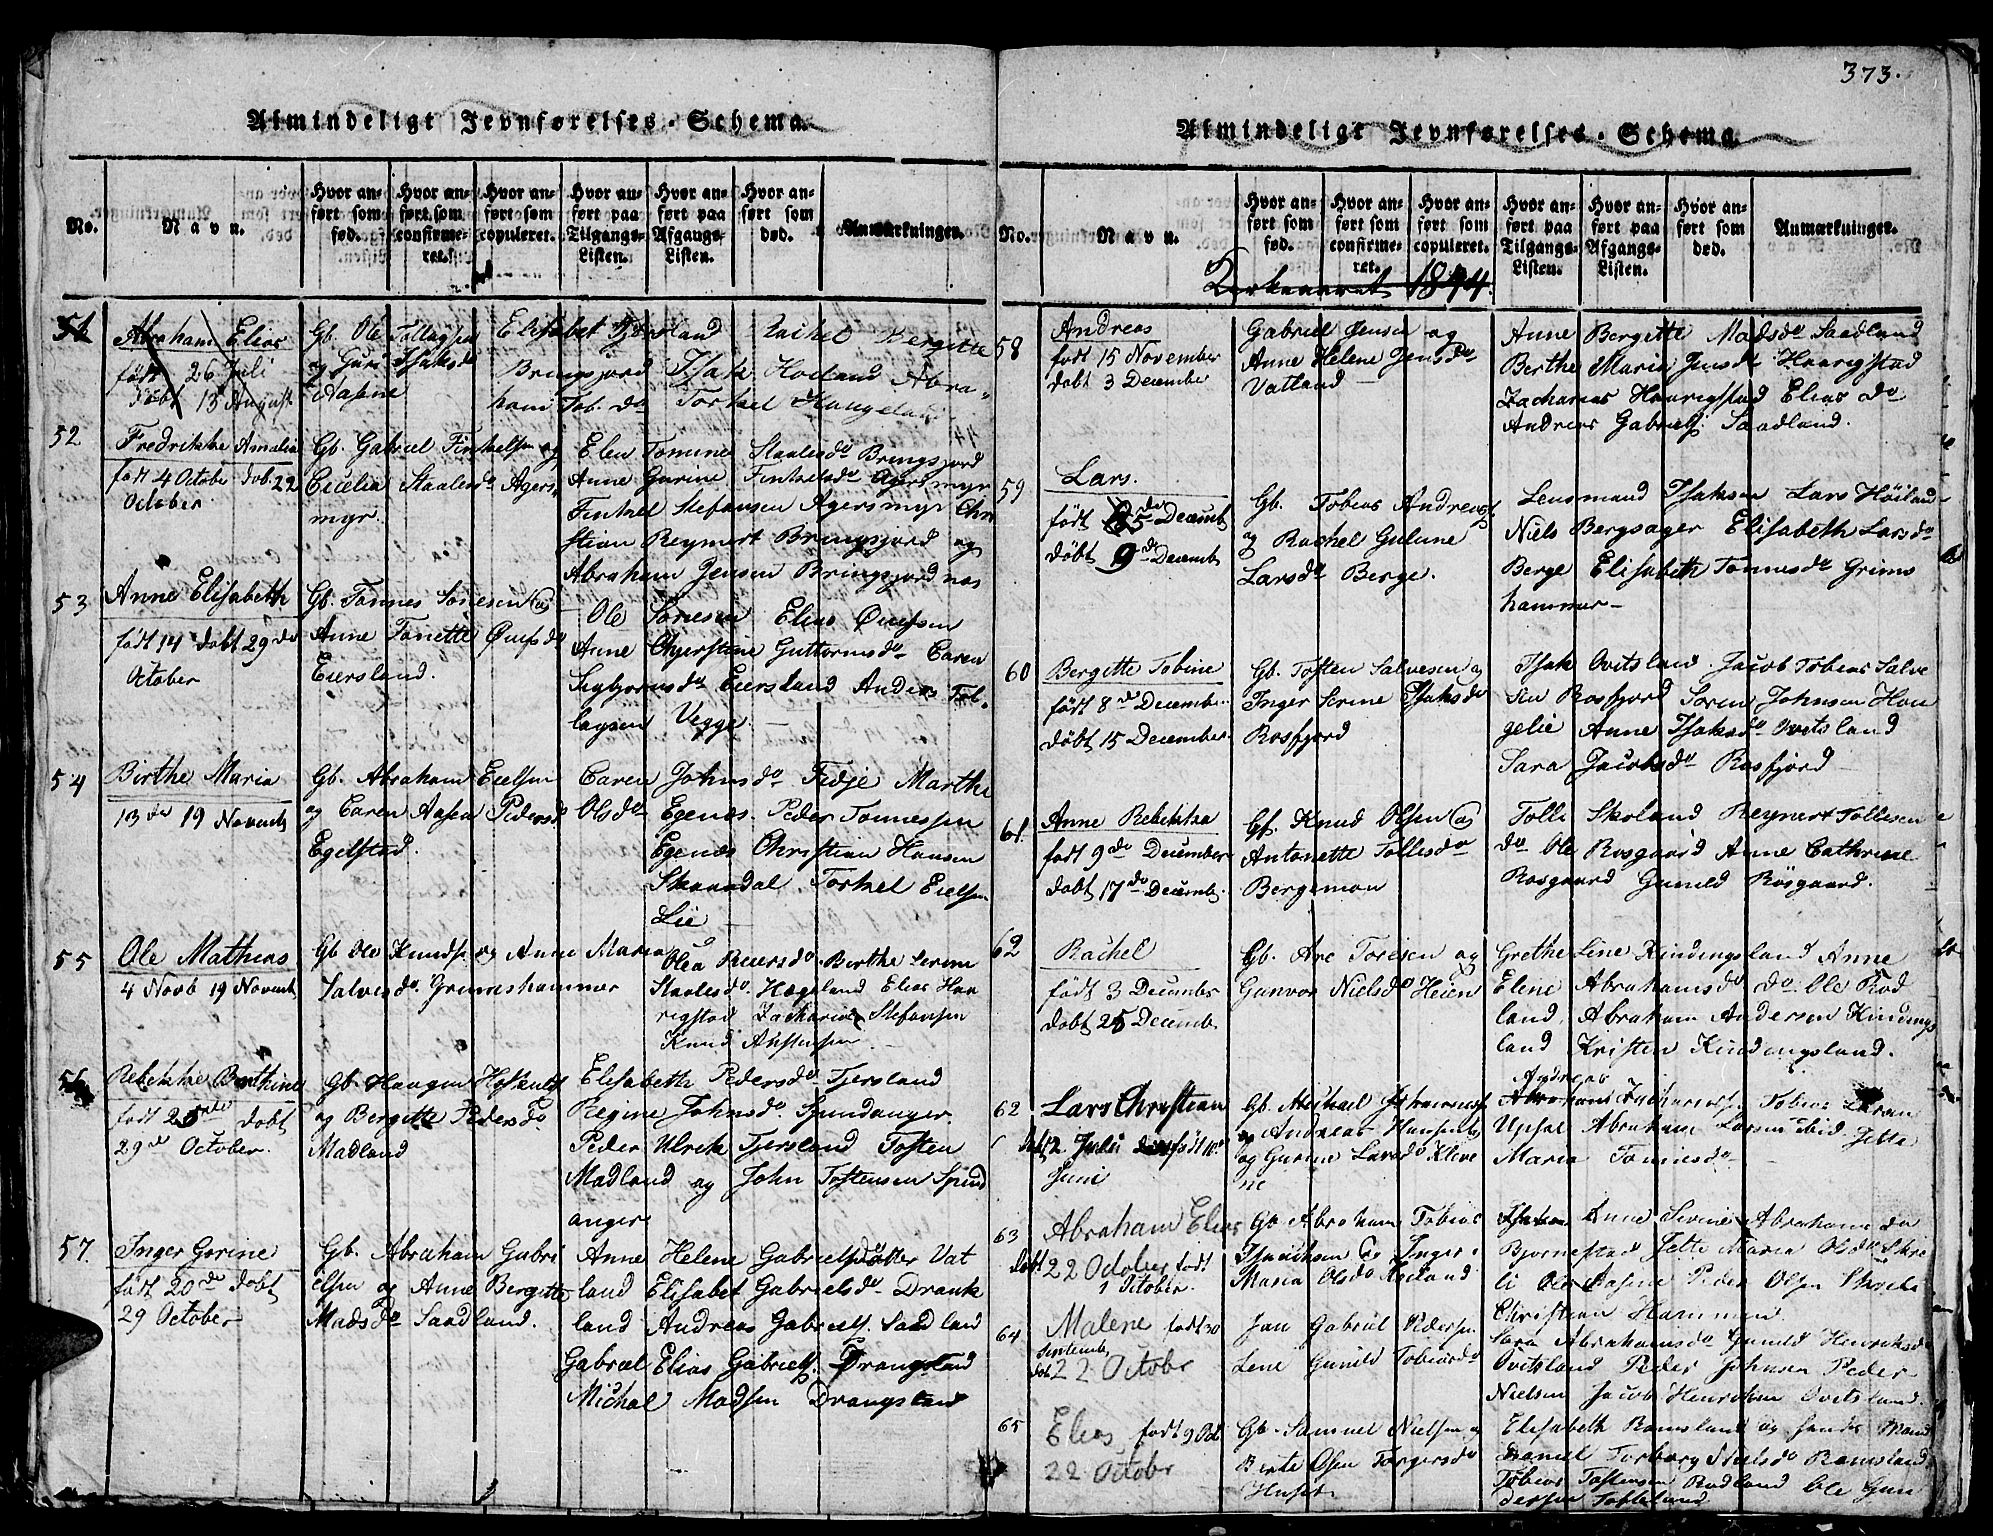 373.
Almindeligt Jevnførelses-Schema.
No.
Navn.
Hvor anført som fød.
Hvor anført som confirmeret.
Hvor anført som copuleret.
Hvor anført paa Tilgangs-Listen.
Hvor anført paa Afgangs-Listen.
Hvor anført som død.
Anmærkninger.
51
Abraham Elias
født 26 Juli
døb 13 August
Gb. Ole Tollagsen
og Guri Isaksd
Aasne
Elisabet Tjersland Rachel Bergitte
Bringsjord Isak Hoeland Abra-
ham Tob. do Torkel Haugeland
52
Fredrikke Amalia
født 4 October dob. 22
October
Gb. Gabriel Finkelsen og
Cecilia Staalesd. Agers
myr.
Elen Tomine Staalesd. Bringsjord
Anne Gurine Finkelsd. Agersmyr
Finkel Stefansen Agersmyr Chri
stian Reynert Bringsjord og
Abraham Jensen Bringsjordnes
53
Anne Elisabeth
født 14 dobt 29 de
October
Gb. Tønnes Sørensen og
Anne Tonette
Eiersland.
Ole Sørensen Elias
Anne Chjerstine Guttormsd. Caren
Sigbjørnsd Eiersland Anders Tol-
lagsen Vegge.
54
Birthe Maria
13 de 19 Novemb
Gb. Abraham Eielsen
og Caren Aasen Pedersd
Egelstad.
Caren Johnsd Fedje Marthe
Olsd Egenæs Peder Tønnessen
Egenæs Christian Hansen
Skrandal Torkel Eielsen
Lie
55
Ole Mathias
4 Novb 19 Novemb
Gb Ole Knudsen og Anne Maria
Salvesd. Grimshammer
Olea Reiersd. Birthe Serine
Staalesd. Hægeland Elias Haa
rigstad Zacharias Stefansen
Knud
56
Rebekke Berthine
født 25 dobt
29 de October.
Gb. Haagen
og Bergitte Pedersd
Madland
Elisabeth Pedersd Tjersland
Regine Johnsd Spindanger.
Peder Ulrik Tjersland Tosten
Madland og John Tostensen Spind
anger
57.
Inger Gorine
født 20 de dobt
29 October
Gb. Abraham Gabri
elsen og Anne Bergitte
Madsd Saadland.
Anne Helene Gabrielsdatter Vat
land Elisabet Gabrielsd. Drank
land Andreas Gabriels. Saadland
Gabriel Elias Gabriels. Drangsland
Michal Madsen Drangsland
Almindeligt Jevnførelses-Schema.
No.
Navn.
Hvor anført som fød.
Hvor anført som confirmeret.
Hvor anført som copuleret.
Hvor anført paa Tilgangs-Listen.
Hvor anført paa Afgangs-Listen.
Hvor anført som død.
Anmærkninger.
Kirkeaaret 1844.
58
Andreas
født 15 November
dobt 3 December
Gabriel Jensen og
Anne Helene Jensd
Vatland
Anne Bergitte Madsd Saadland
Berthe Maria Jensd Haarigstad
Zacharias Haarigstad Elias do
Andreas Gabriels. Saadland.
59
Lars.
født 5 de Decemb
døbt 9 de Decemb
Gb. Tobias Andreas
og Rachel Guline
Larsd Berge.
Lensmand Isaksen Lars Höiland
Niels Bergsager Elisabeth Larsd
Berge Elisabeth Tønnesd Grims
hammer
60
Bergitte Tobine
født 8 de December
døbt 15 December
Gb. Tosten Salvesen og
Inger Serine Isaksd
Rosfjord
Isak Ovitsland Jacob Tobias Salve
sen Rosfjord Søren Johnsen Hou
gelie Anne Isaksd Ovitsland
Sara Jacobsd Rosfjord
61.
Anne Rebekka
født 9 de December
dobt 17 de Decemb.
Gb. Knud Olsen og
Antonette Tollesd
Bergemon
Tolle Skoland Reynert Tollesen
do Ole Rosgaard Anne Cathrine
Rosgaard Gunild Rosgaard.
62
Rachel
født 3 December
dobt 25 Decemb.
Gb. Are Toresen og
Gunvor Nielsd Heien
Grethe Line Kindingsland Anne
Elene Abrahamsd do Ole Rod
land, Abraham Andersen Kindings
land Kristen Kindingsland.
62
Lars Christian
dobt 2 Juli født 10
Juni
Gb. Michael
og Gurine Larsd Kleve
ne
Andreas
Abraham Tobias
Upsal Abraham Larsen ibid. Jette
Maria Tønnesd
63
Abraham Elias
døbt 22 October født
1 October.
Gb Abraham Tobias
og Inger
Maria Olsd Høiland
Anne Serine Abrahams do
Bjørnestad Jette Maria Olsd
Ole Aasne Peder Olsen
Christian Hammen
64
Malene født 30
Septemb
dob 22 October
Jan Gabriel Pedersen
Lene Gunild Tobiasd
Sara Abrahamsd Gunild Henriksd
Ovitsland Peder Johnsen Peder
Nielsen Jacob Henriksen Ovitsland.
65
Elias, født 9 Oct
22 October
Gb. Samuel Nielsen og
Birte Torgersd
Huseb
Elisabeth Ramsland og hendes Mand
Daniel Torborg Nielsd Ramsland
Tobias Tostensen Rødland Ole Gun
dersen